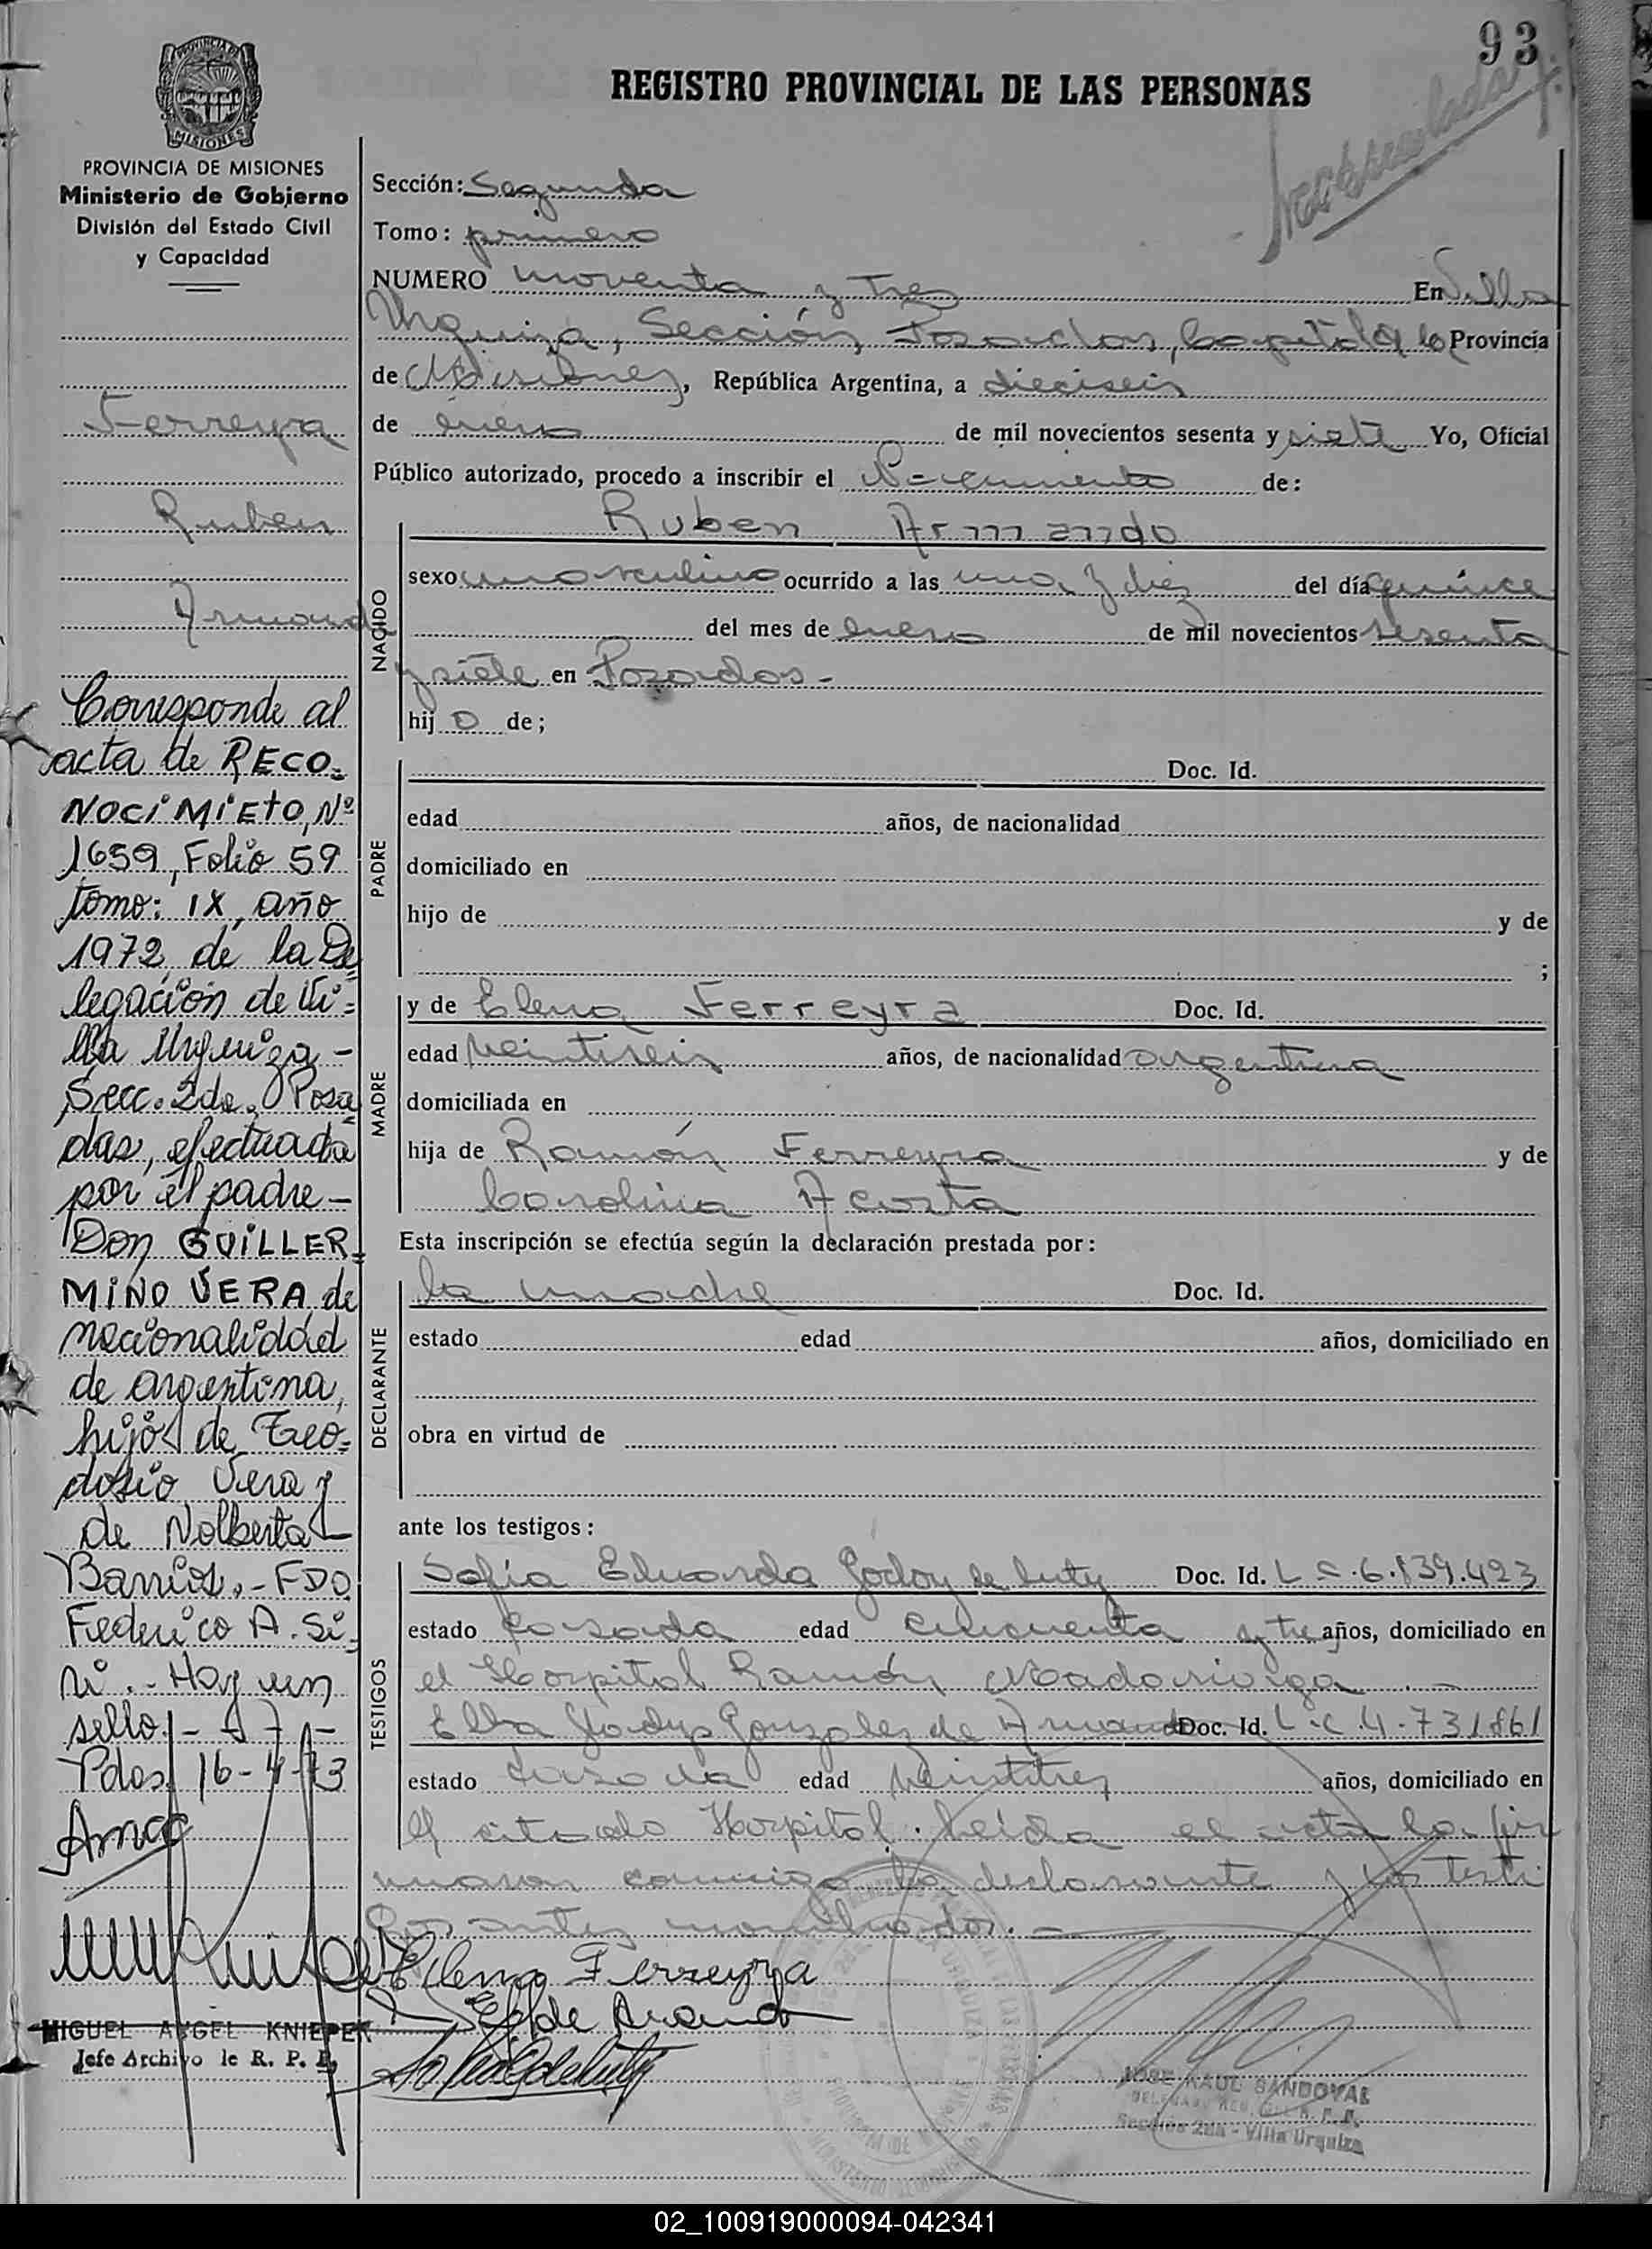 93
REGISTRO PROVINCIAL DE LAS PERSONAS
PROVINCIA DE
MISIONES
PROVINCIA DE MISIONES
Ministerio de Gobierno
División del Estado Civil
y Capacidad
Ferreyra
Ruben
Armando
Corresponde al
acta de RECO=
NOCIMIETO, Nº
1659, Folio 59
tomo: IX, año
1972 de la De
legación de Vi=
lla Urquiza -
Secc. 2da. Posa
das, efectuada
por el padre -
Don GUILLER=
MINO VERA, de
nacionalidad
de argentina,
hijo de Teo=
dosio Vera y
de Nolberta
Barrios.- FDO
Federico A. Si=
ni.- Hay un
sello.-
Pdas, 16-4-73
MIGUEL ANGEL KNIEPER
Jefe Archivo de R. P. P.
Sección: Segunda
Tomo: primero
NUMERO noventa y tres En Villa
Urquiza, Sección Posadas, Capital de la Provincia
de Misiones, República Argentina, a dieciseis
de enero de mil novecientos sesenta y siete Yo, Oficial
Público autorizado, procedo a inscribir el Nacimiento de:
NACIDO
Ruben Armando
sexo masculino ocurrido a las una y diez del día quince
del mes de enero de mil novecientos sesenta
y siete en Posadas -
hij o de;
PADRE
Doc. Id.
edad años, de nacionalidad
domiciliado en
hijo de y de
;
MADRE
y de Elena Ferreyra Doc. Id.
edad veintiseis años, de nacionalidad argentina
domiciliada en
hija de Ramón Ferreyra y de
Carolina Acosta
Esta inscripción se efectúa según la declaración prestada por:
DECLARANTE
la madre Doc. Id.
estado edad años, domiciliado en
obra en virtud de
ante los testigos:
TESTIGOS
Sofia Eduarda Godoy de Luty Doc. Id. L C. 6.839.423
estado casada edad cincuenta y tres años, domiciliado en
el Hospital Ramón Madariaga
Elba Gladys Gonzalez de Doc. Id. L.C. 4.731861
estado casada edad veintitres años, domiciliado en
el citado Hospital. Leída el acta la fir
maron conmigo la declarante y los testi
gos antes nombrados. -
Elena Ferreyra
JOSE RAUL SANDOVAL
Sección 2da - Villa Urquiza
02_100919000094-042341